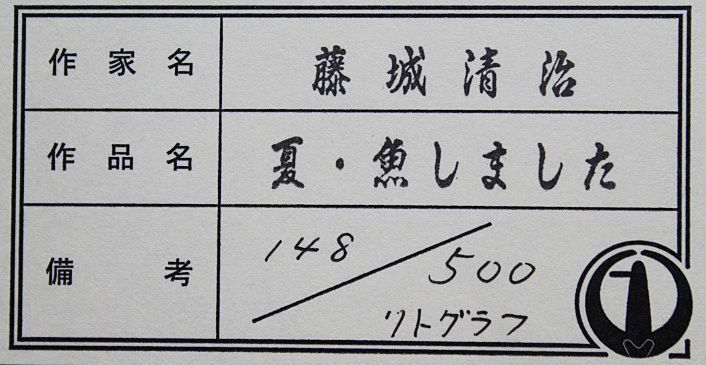 作家名 藤城清治
作品名 夏・魚しました
備考 148/500
リトグラフ